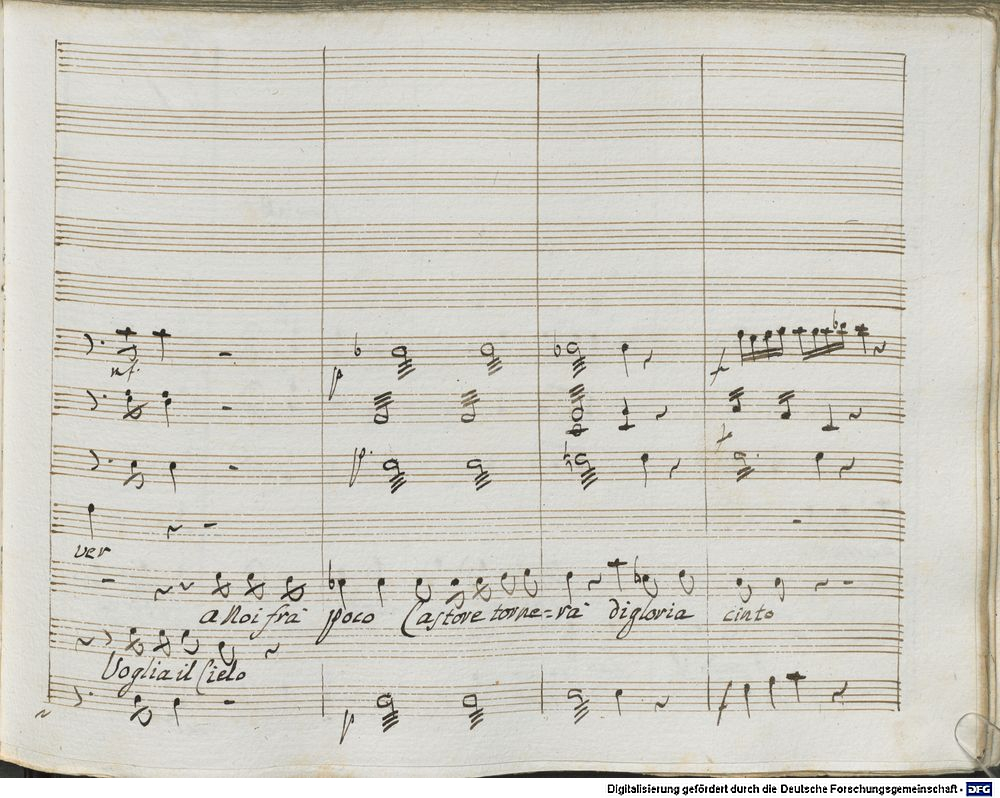 mf.
p
f
p.
f
ver
a Noi frà poco Castore torne=rà di gloria cinto
Voglia il Cielo
p
f
Digitalisierung gefördert durch die Deutsche Forschungsgemeinschaft - DFG